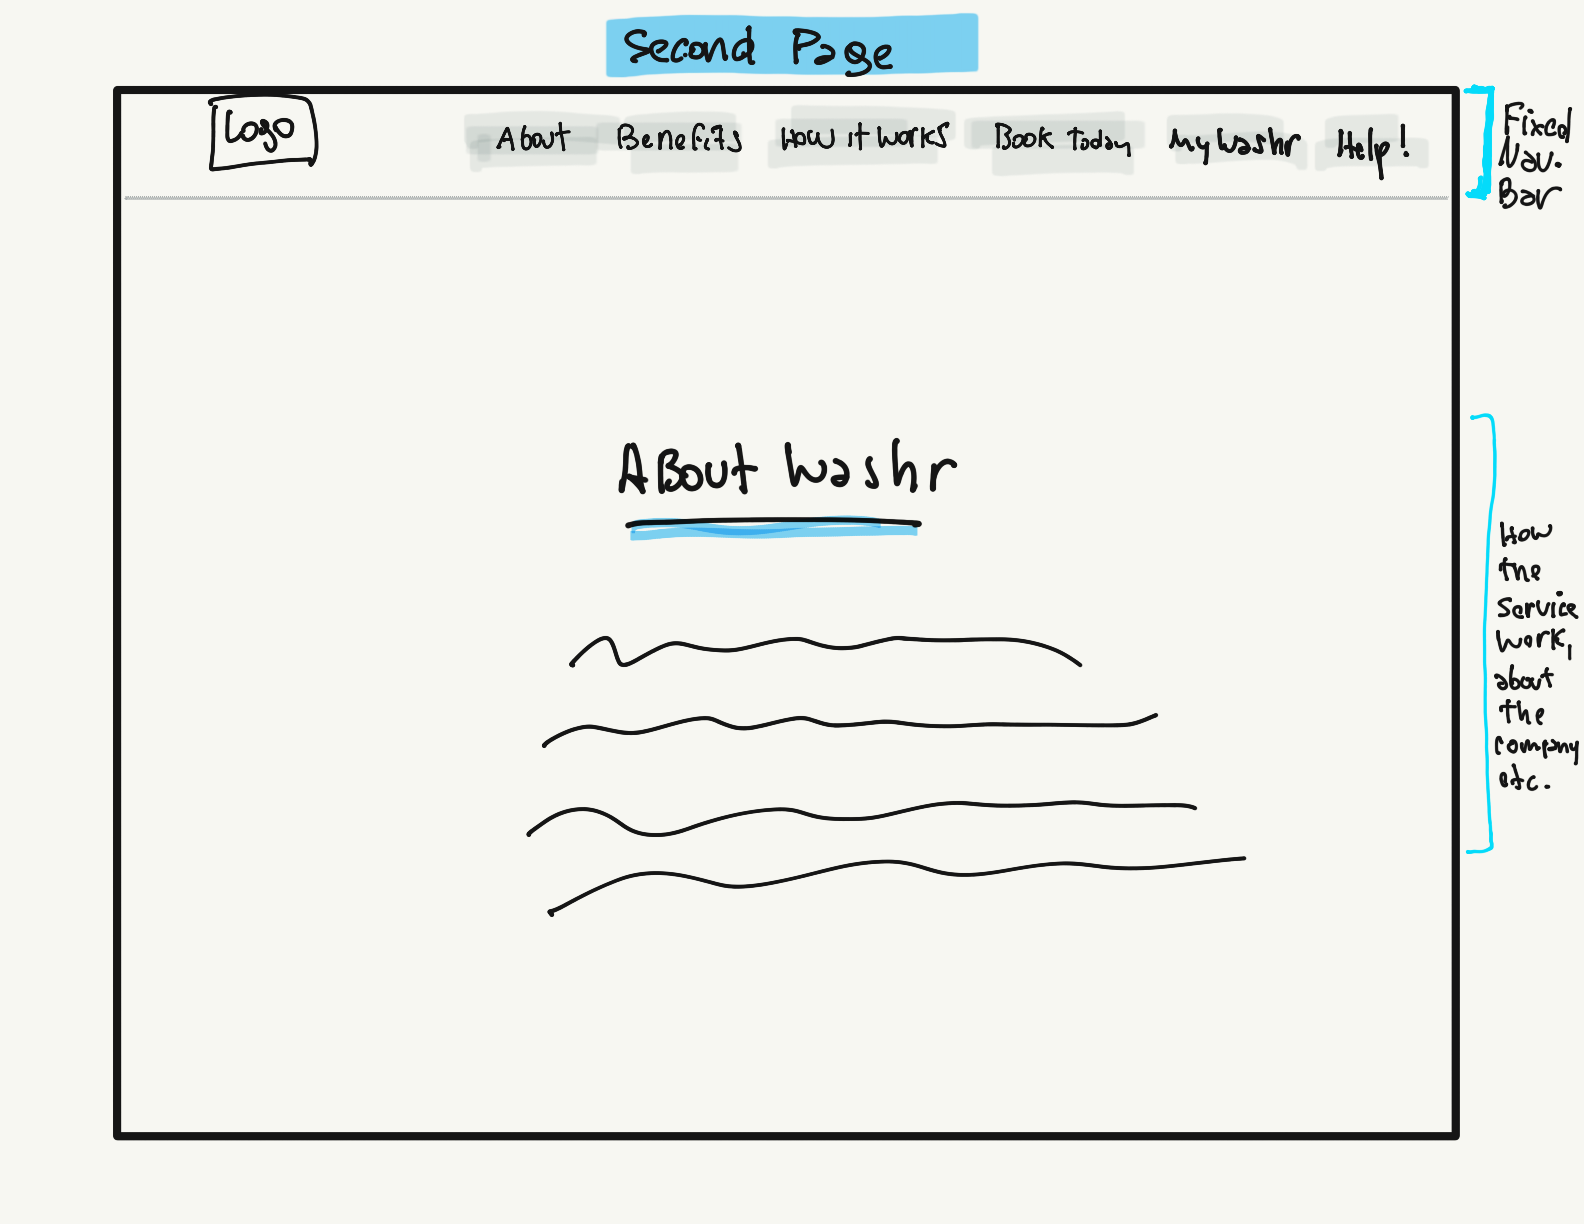 Second Page
Logo
About Benefits How it works Book Today My Washr Help!
Fixed
Nav.
Bar
About Washr
How
the
Service
work,
about
the
company
etc.